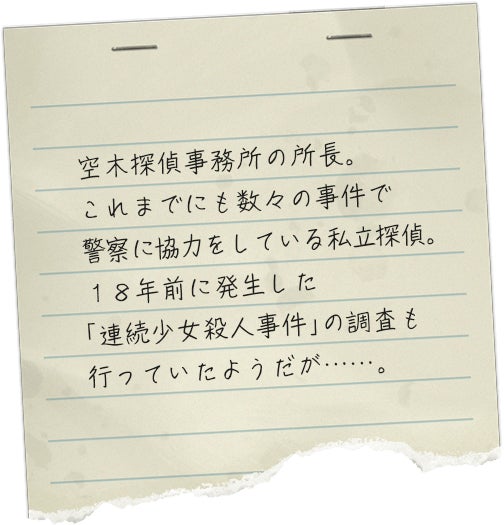 空木探偵事務所の所長。
これまでにも数々の事件で
警察に協力をしている私立探偵。
１８年前に発生した
｢連続少女殺人事件｣の調査も
行っていたようだが……。